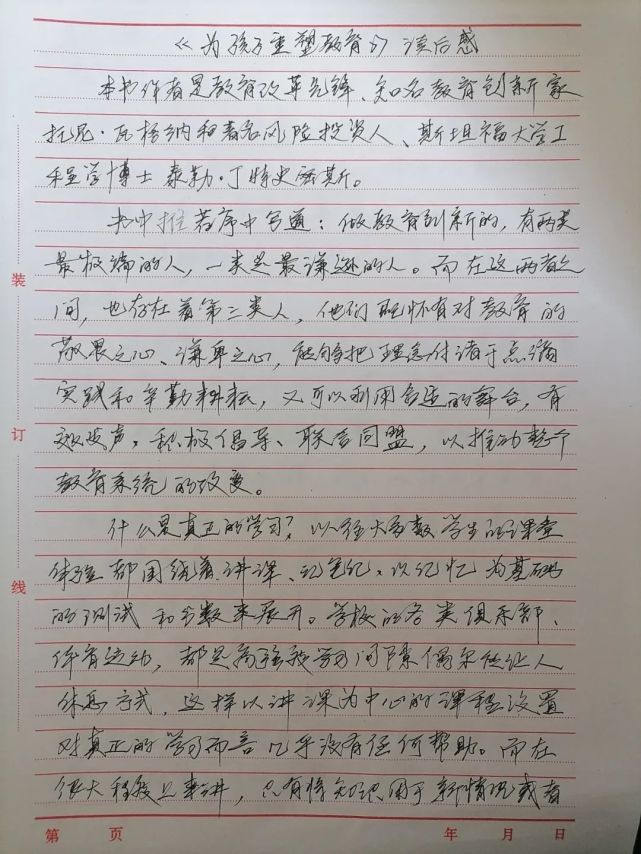 《为孩子重塑教育》读后感
本书作者是教育改革先锋、知名教育创新家
托尼·瓦格纳和著名风险投资人、斯坦福大学工
程学博士泰勒·丁特史密斯。
书中推荐序中写道：做教育创新的，有两类
最极端的人，一类是最谦逊的人。而在这两者之
间，也存在着第三类人，他们既怀有对教育的
敬畏之心、谦卑之心，能够把理念付诸于点滴
实践和辛勤耕耘，又可以利用合适的舞台，有
效发声，积极倡导、联合同盟，以推动整个
教育系统的改变。
什么是真正的学习？以往大多数学生的课堂
体验都围绕着讲课、记笔记、以记忆为基础
的测试和分数来展开。学校的各类俱乐部、
体育运动，都是高强度学习间隙偶尔给让人
休息方式，这样以讲课为中心的课程设置
对真正的学习而言几乎没有任何帮助。而在
很大程度上来讲，只有将知识用于新情况或者
装
订
线
第 页 年 月 日